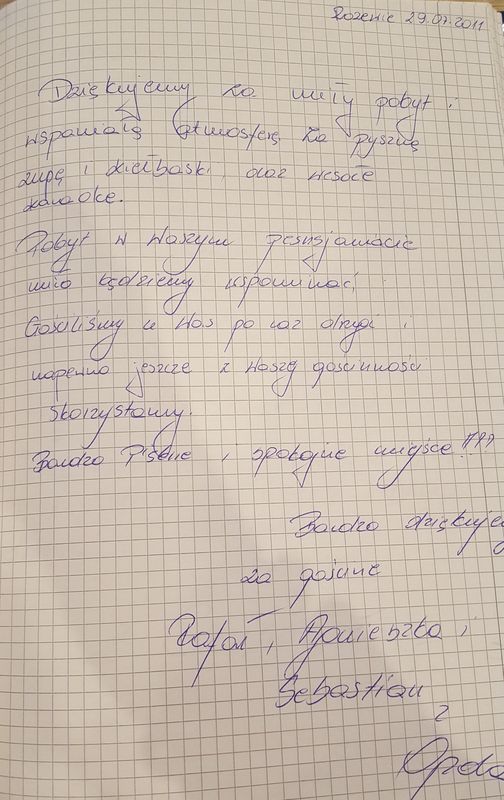 Rozenie 29.07.2011
Dziękujemy za miły pobyt i
wspaniałą atmosferę, za pyszną
zupę i kiełbaski, oraz wesołe
karaoke.
Pobyt w Waszym pensjonacie
miło będziemy wspominać,
Gościliśmy u Was po raz drugi i
napewno jeszcze z Waszej gościnności
skorzystamy.
Bardzo Piękne i spokojne miejsce !!!
Bardzo dziękuje
za gościnę
Rafał, Agnieszka i
Sebastian
z